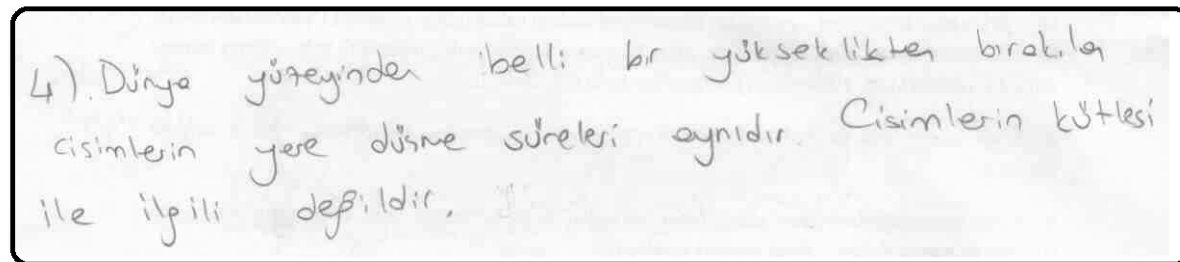 4). Dünya yüzeyinden belli bir yükseklikten bırakılan
cisimlerin yere düşme süreleri aynıdır. Cisimlerin kütlesi
ile ilgili değildir.